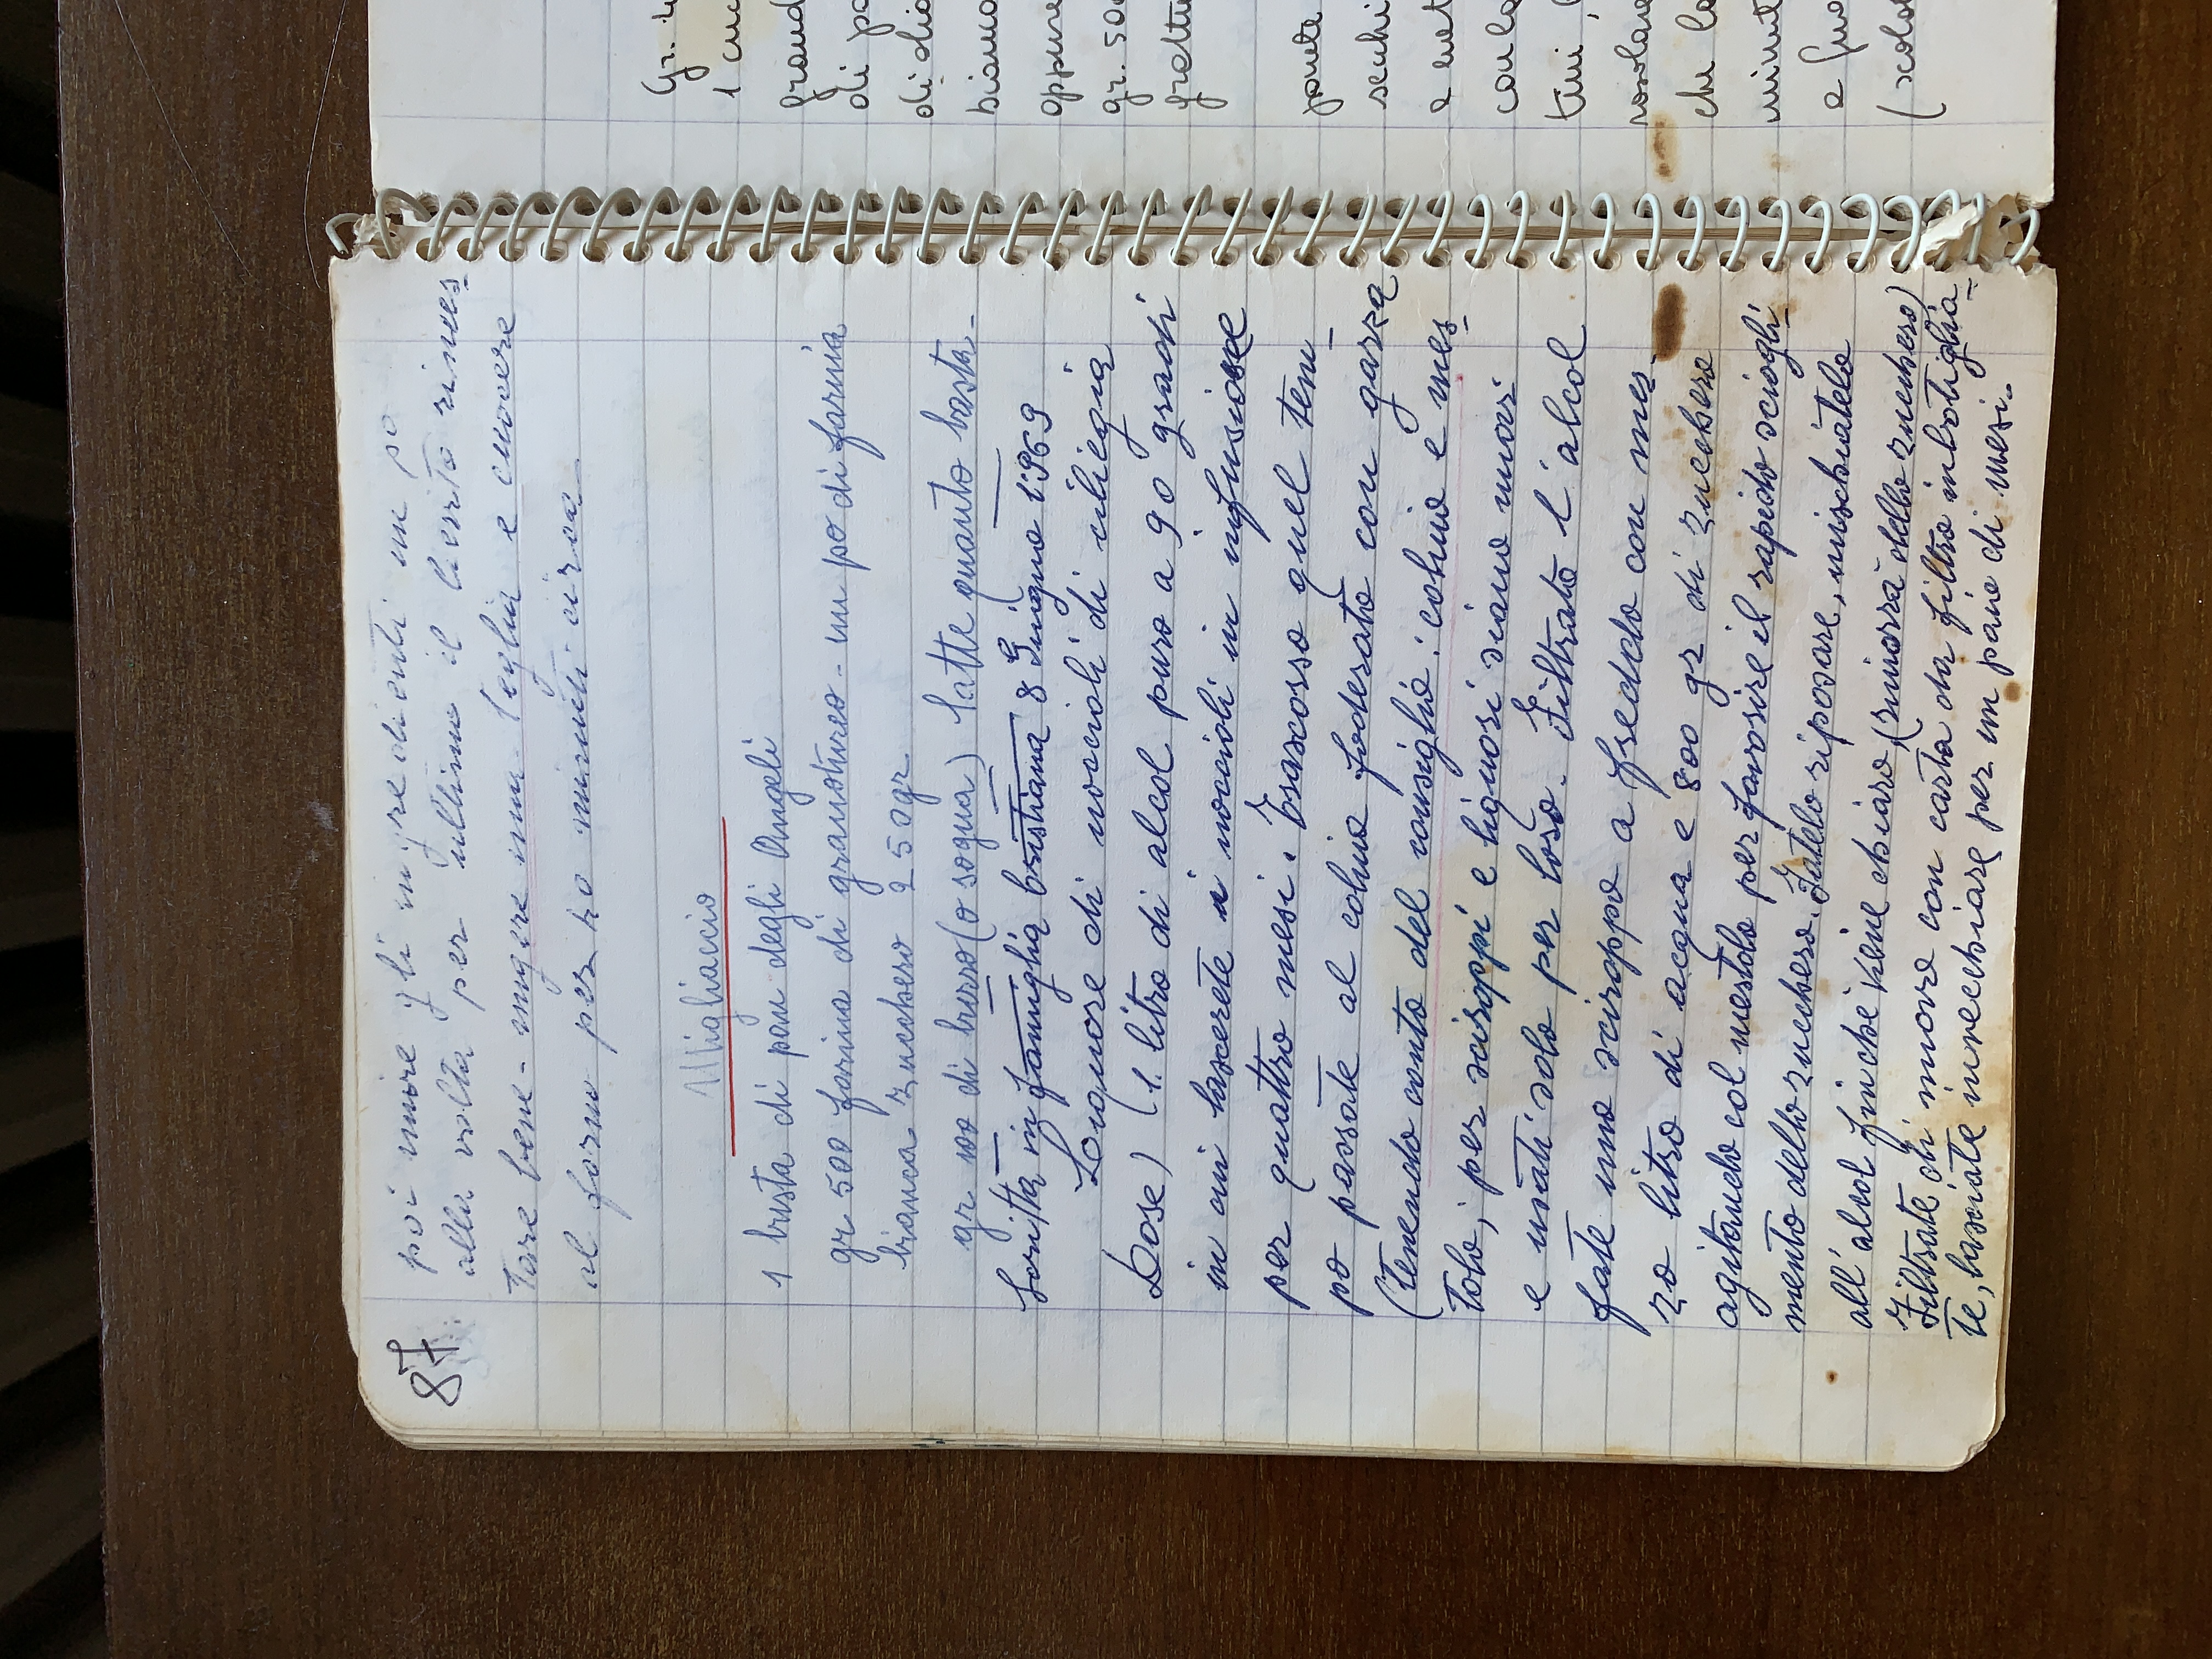 87
poi unire gli ingredienti un po
alla volta per ultimo il lievito rimes-
tare bene - ungere una teglia e cuocere
al forno per 40 minuti circa
Migliaccio
1 busta di pan degli Angeli
gr 500 farina di granoturco - un po di farina
bianca zucchero 250gr
gr 100 di burro (o sogna) latte quanto basta -
Scritta in famiglia Cristiana 8 Giugno 1969
Liquore di noccioli di ciliegia
Dose) 1. litro di alcol puro a 90 gradi
in cui lascerete i noccioli in infusione
per quattro mesi. Trascorso quel tem-
po passate al colino foderato con garza
(tenendo conto del consiglio: colino e mes-
tolo; per sciroppi e liquori siano nuovi
e usati solo per loro. Filtrato l'alcol
fate uno sciroppo a freddo con mez-
zo litro di acqua e 800 gr di zucchero
agitando col mestolo per favorire il rapido sciogli-
mento dello zucchero. Fatelo riposare, mischiatelo
all'alcol finché viene chiaro, (rimarrà dello zucchero)
Filtrate di nuovo con carta da filtro inbotiglia-
te, lasciate invecchiare per un paio di mesi.
Gr. 4
1 cuc
grand
di po
di olio
bianco
oppure
gr. 500
grattu
ponete
secchi
e not
con lo
tini, l
rosolare
che lo
minut
e
(scolo